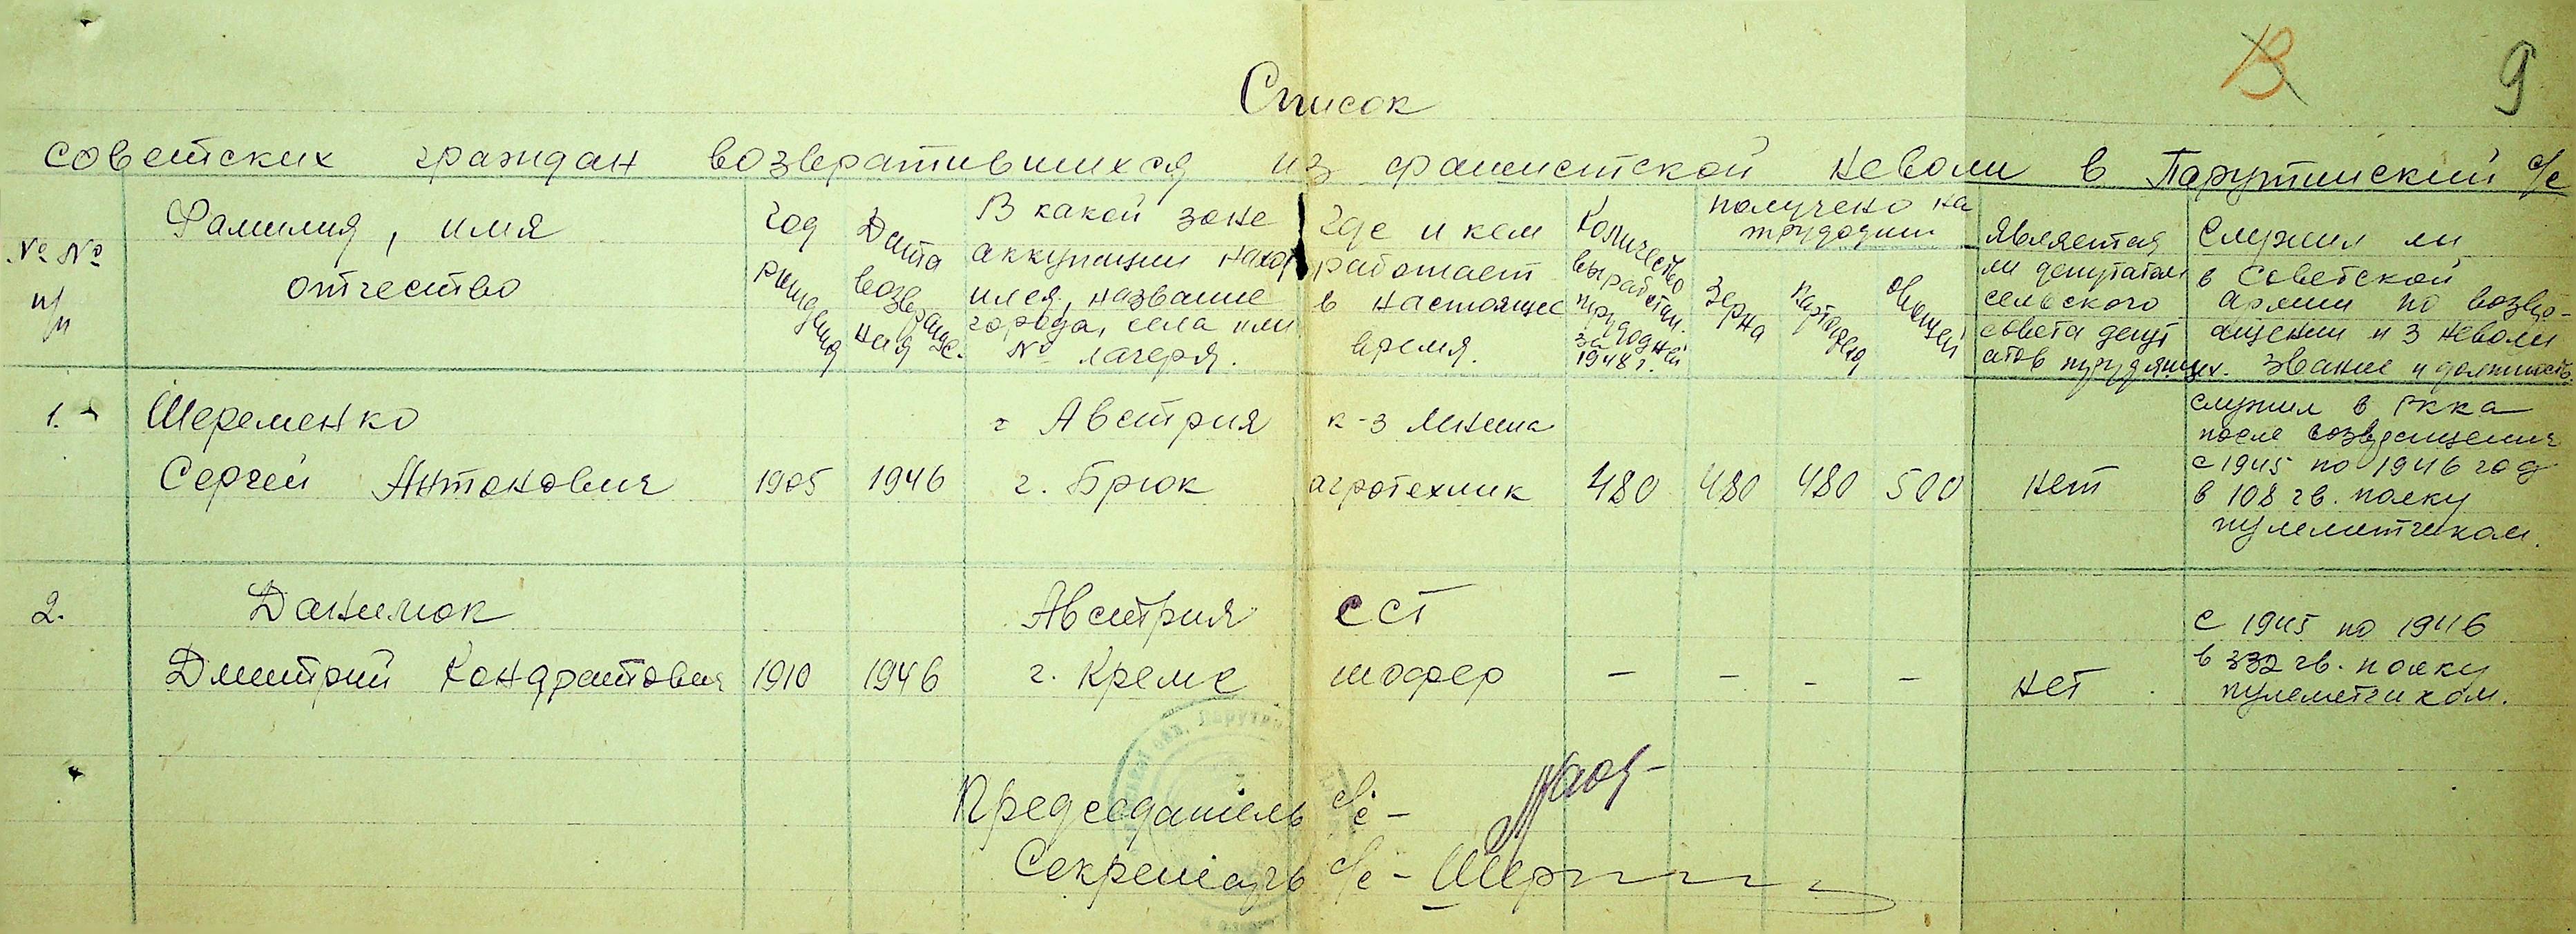 В 9
Список
советских граждан возвратившихся из фашистской неволи в Парутинский с/с
№ №
п/п
Фамилия, имя
отчество
Год
рождения
Дата
возвраще.
ния
В какой зоне
аккупации наход
ился, название
города, села или
№ лагеря.
Где и кем
работает
в настоящее
время.
Количество
выработан.
трудодней
за 1948 г.
получено на
трудодни
Зерна
Картофеля
Овощей
Является
ли депутатам
сельского
совета депут
атов трудящих.
Служил ли
в Советской
армии по возвр-
ащении из неволи
звание и должность.
1. Шеременко
Сергей Антонович 1905 1946
г Австрия
г. Брюк
к-з
агротехник 480 480 480 500 нет
служил в РККА
после возвращения
с 1945 по 1946 год
в 108 гв. полку
пулеметчиком.
2. Данилюк
Дмитрий Кондратович 1910 1946
Австрия
г. Кремс
ССТ
шофер – – – – нет
с 1945 по 1946
в 332 гв. полку
пулеметчиком.
Председатель с/с –
Секретарь с/с –